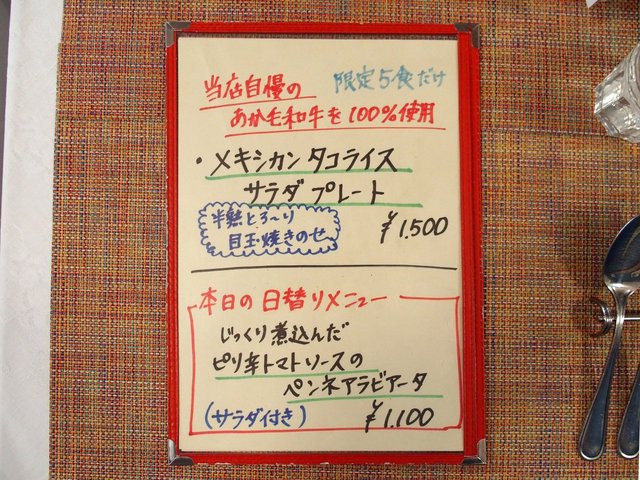 当店自慢の 限定5食だけ
あか毛和牛を100%使用
・メキシカンタコライス
サラダプレート
半熟とろ〜り
目玉焼きのせ
¥1.500
本日の日替りメニュー
じっくり煮込んだ
ピリ辛トマトソースの
ペンネアラビアータ
(サラダ付き) ¥1.100